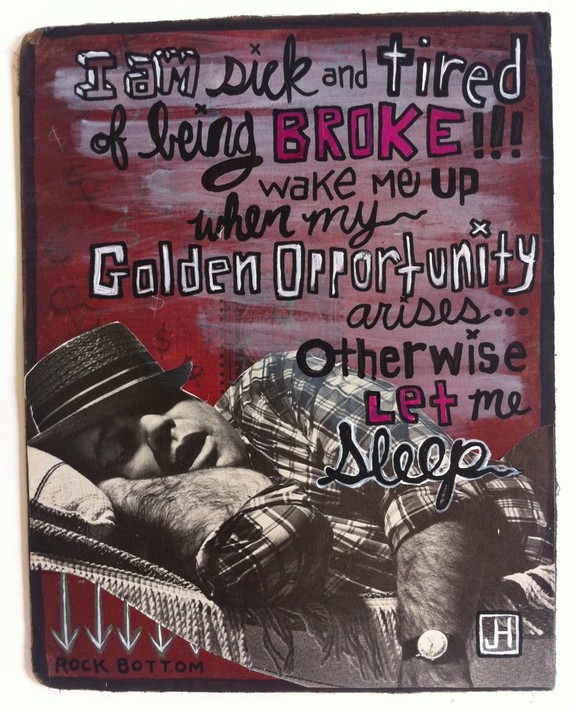 I am sick and tired
of being BROKE!!!
wake me up
when my
Golden Opportunity
arises...
Otherwise
Let me
sleep
JH
ROCK BOTTOM